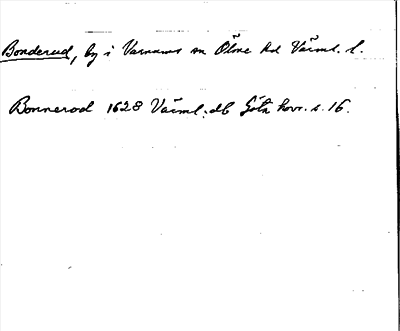 Bonderud, by i Varnums sn Ölme hd Värml. l.
Bonnerod 1628 Värml. db Göta hovr. s. 16.